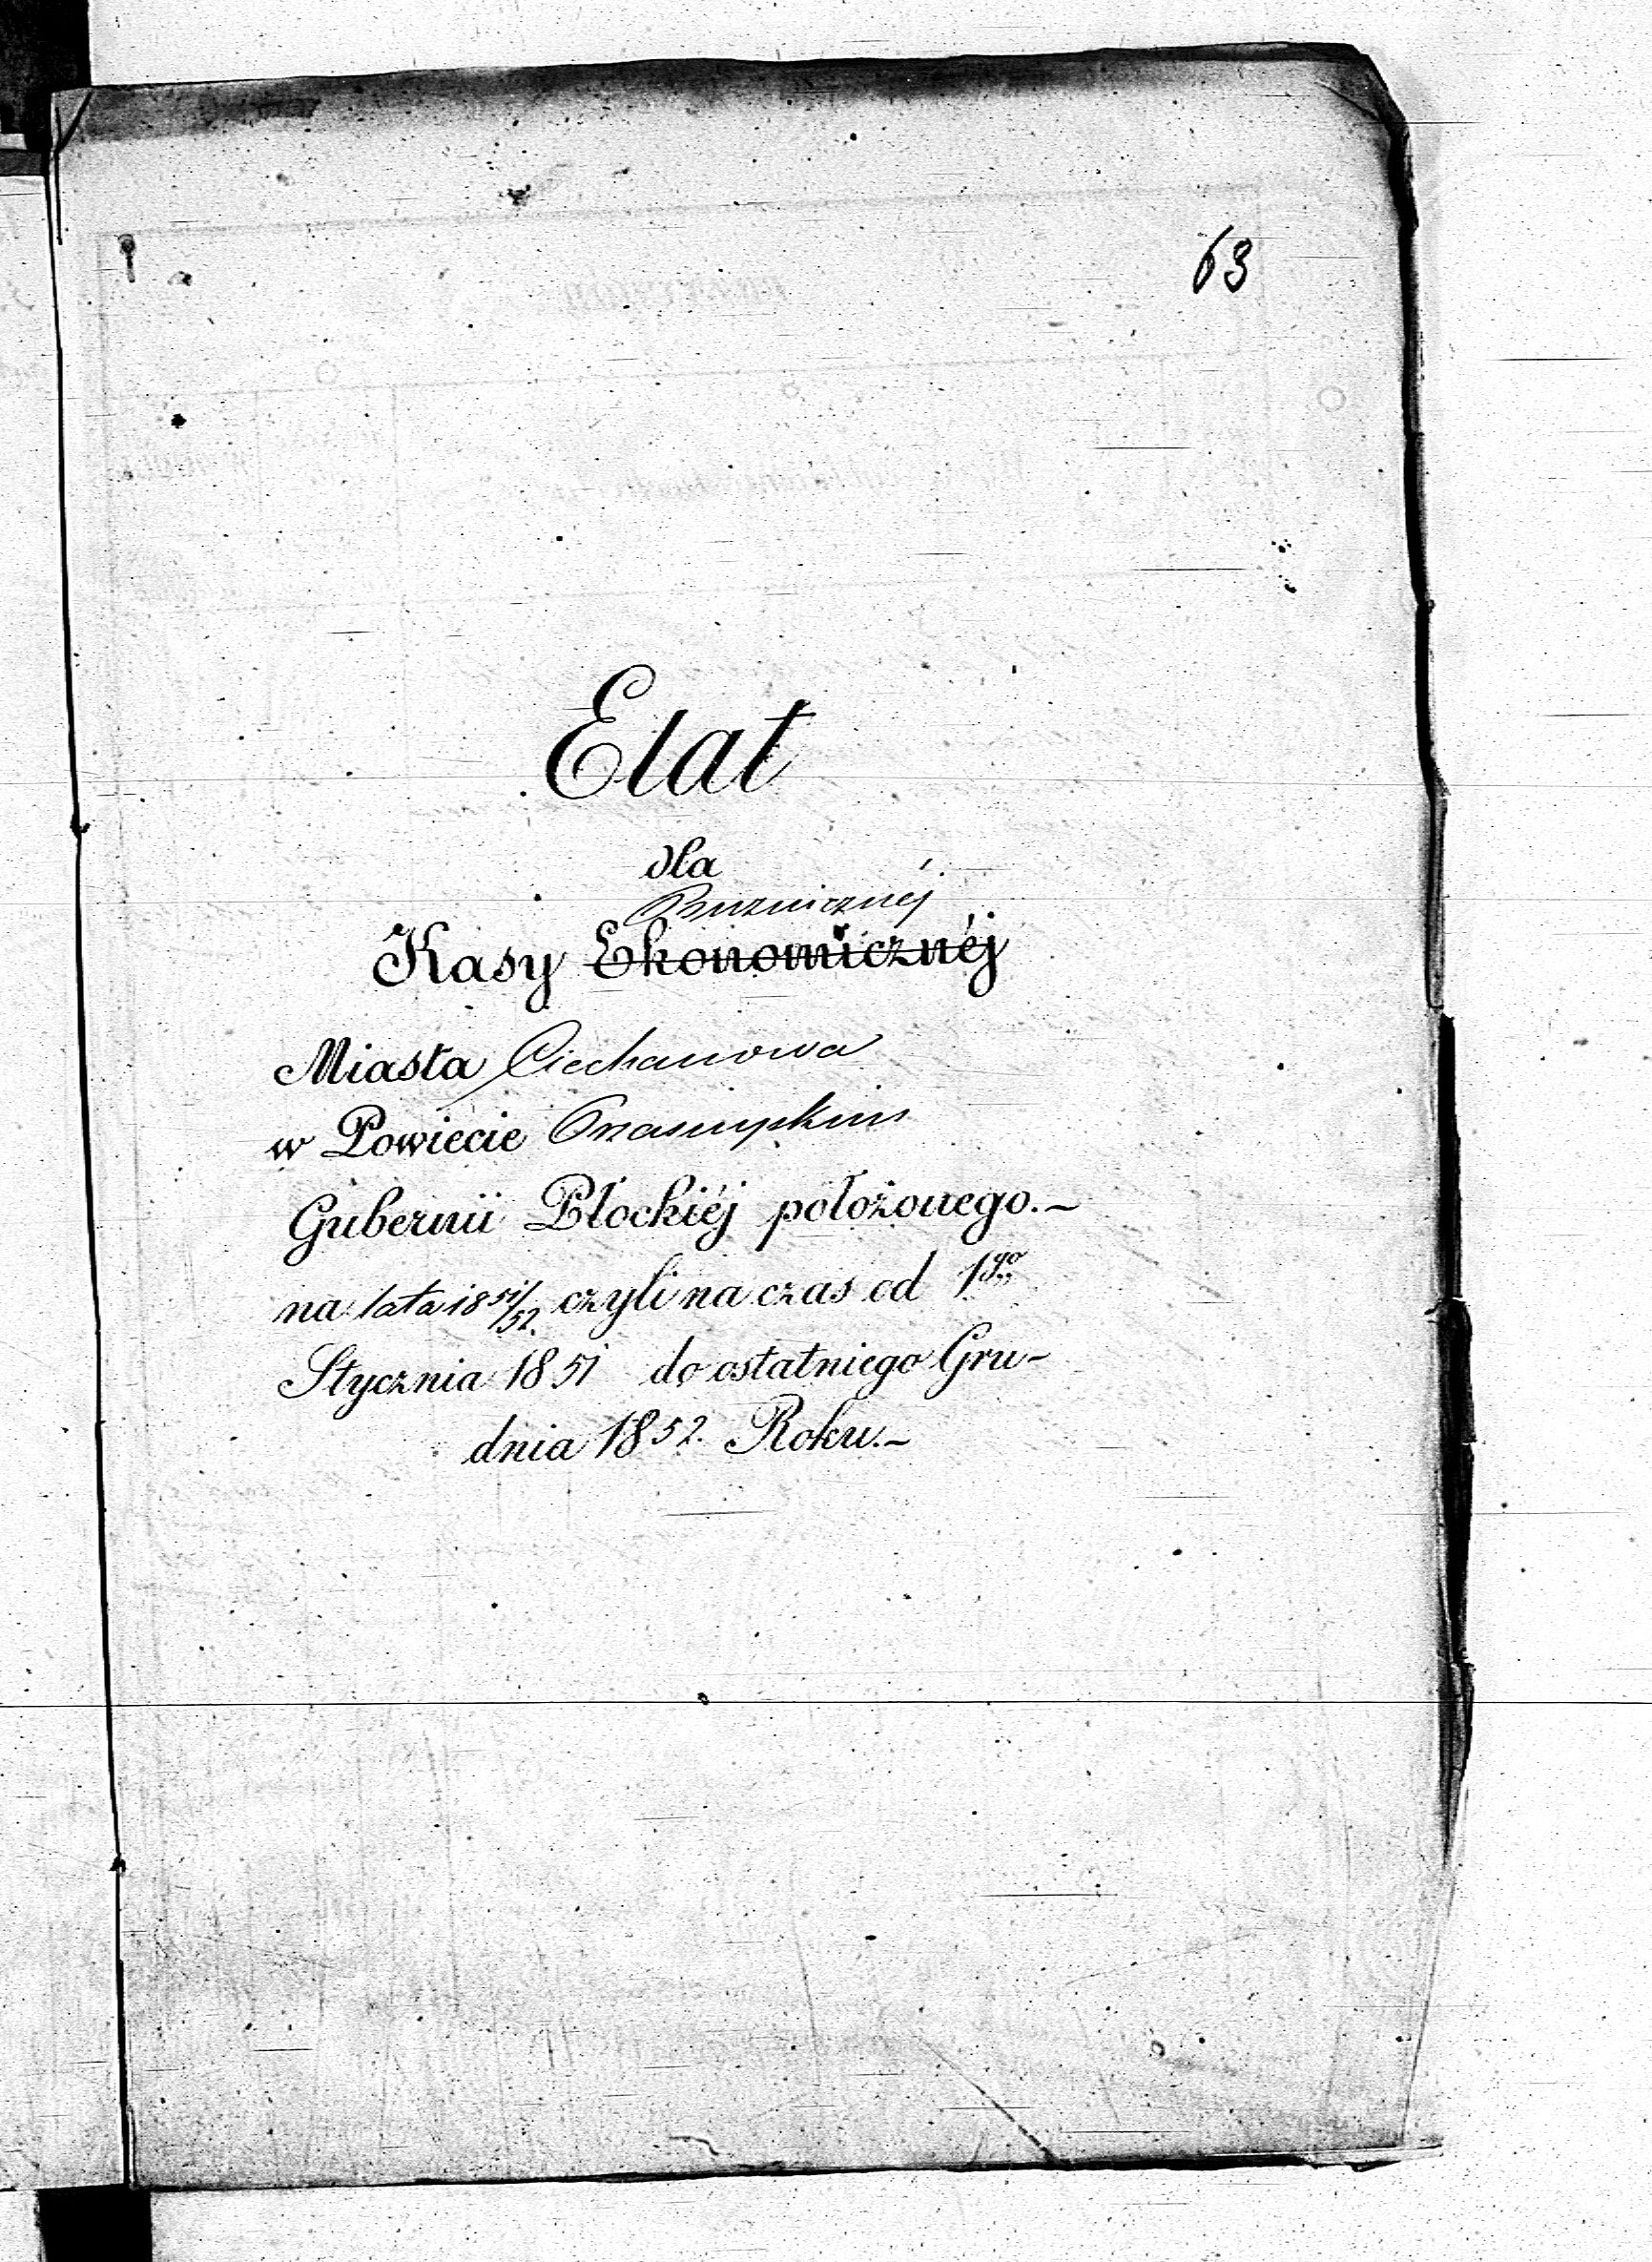 63
Etat
dla
Bużnicznéj
Kasy Ekonomicznéj
Miasta Ciechanowa
w Powiecie Przasnyskim
Gubernii Płockiéj położonego.~
na lata 1851/52. czyli na czas od 1go
Stycznia 1851 do ostatniego Gru-
dnia 1852. Roku.~